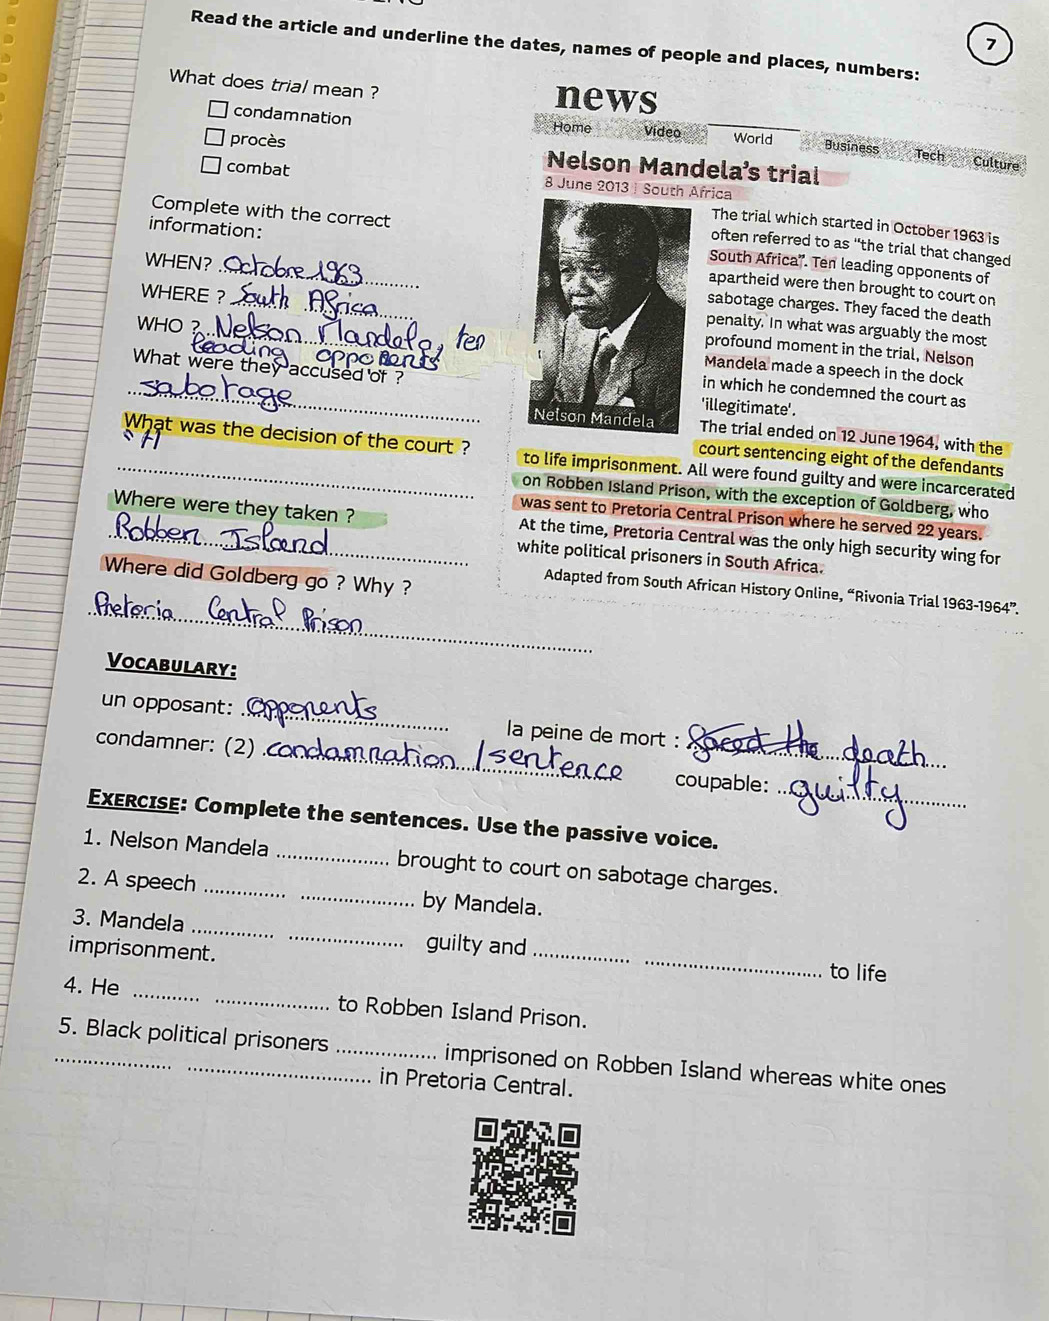 Read the article and underline the dates, names of people and places, numbers:
7
What does trial mean ?
condamnation
procès
combat
Complete with the correct
information:
WHEN? Octobre 1963
WHERE ? South Africa
WHO ? Nelson Mandela, ten
leading opponents
What were they accused of ?
sabotage
What was the decision of the court ?
Where were they taken ?
Robben Island
Where did Goldberg go ? Why ?
Pretoria Central Prison
news
Home Video World Business Tech Culture
Nelson Mandela's trial
8 June 2013 | South Africa
Nelson Mandela
The trial which started in October 1963 is
often referred to as "the trial that changed
South Africa". Ten leading opponents of
apartheid were then brought to court on
sabotage charges. They faced the death
penalty. In what was arguably the most
profound moment in the trial, Nelson
Mandela made a speech in the dock
in which he condemned the court as
'illegitimate'.
The trial ended on 12 June 1964, with the
court sentencing eight of the defendants
to life imprisonment. All were found guilty and were incarcerated
on Robben Island Prison, with the exception of Goldberg, who
was sent to Pretoria Central Prison where he served 22 years.
At the time, Pretoria Central was the only high security wing for
white political prisoners in South Africa.
Adapted from South African History Online, "Rivonia Trial 1963-1964".
VOCABULARY:
un opposant: opponents
la peine de mort : faced the death
condamner: (2) condamnation / sentence
coupable: guilty
EXERCISE: Complete the sentences. Use the passive voice.
1. Nelson Mandela .................... brought to court on sabotage charges.
2. A speech .............. .................... by Mandela.
3. Mandela .............. .................... guilty and ................. ............................... to life
imprisonment.
4. He ............ .................... to Robben Island Prison.
5. Black political prisoners .................. imprisoned on Robben Island whereas white ones
.................... ................................ in Pretoria Central.